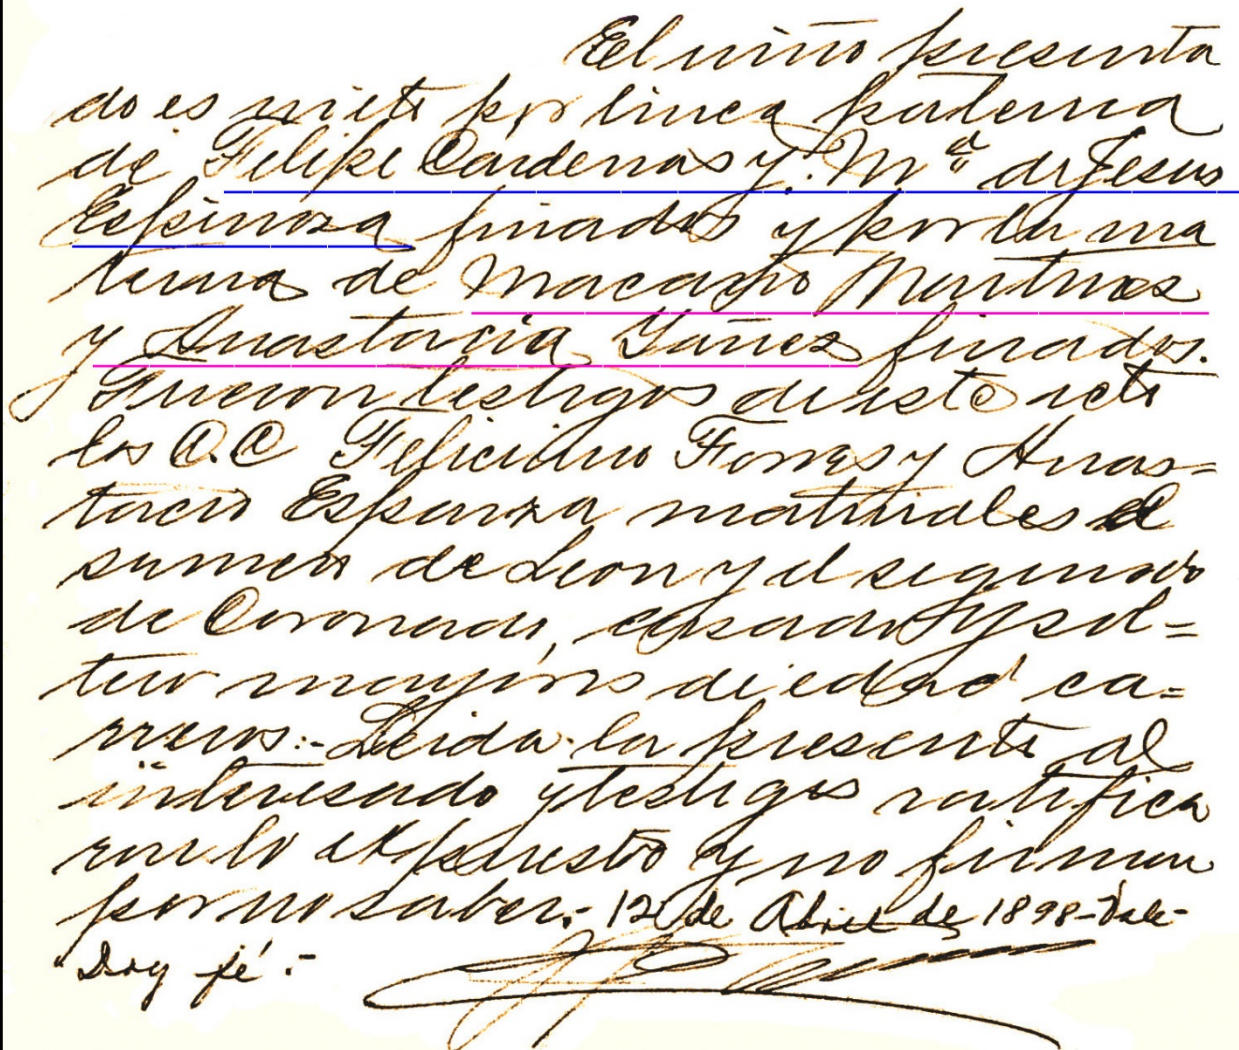 El niño presenta
do es nieto por linea paterna
de Felipe Cardenas y Mª de Jesus
Espinoza finados y por la ma
terna de Macario Martines
y Anastacia Yañez finados.
Fueron testigos de este acto
los C.C Feliciano Torres y Anas=
tacio Esparza naturales el
 de Leon y el segundo
de Coronado, casado y sol=
tero mayores de edad ca=
rreros:- Leida la presente al
interesado y testigos ratifica
ron lo expuesto y no firman
por no saber.- 12 de Abril de 1898-Vale-
Doy fé.-